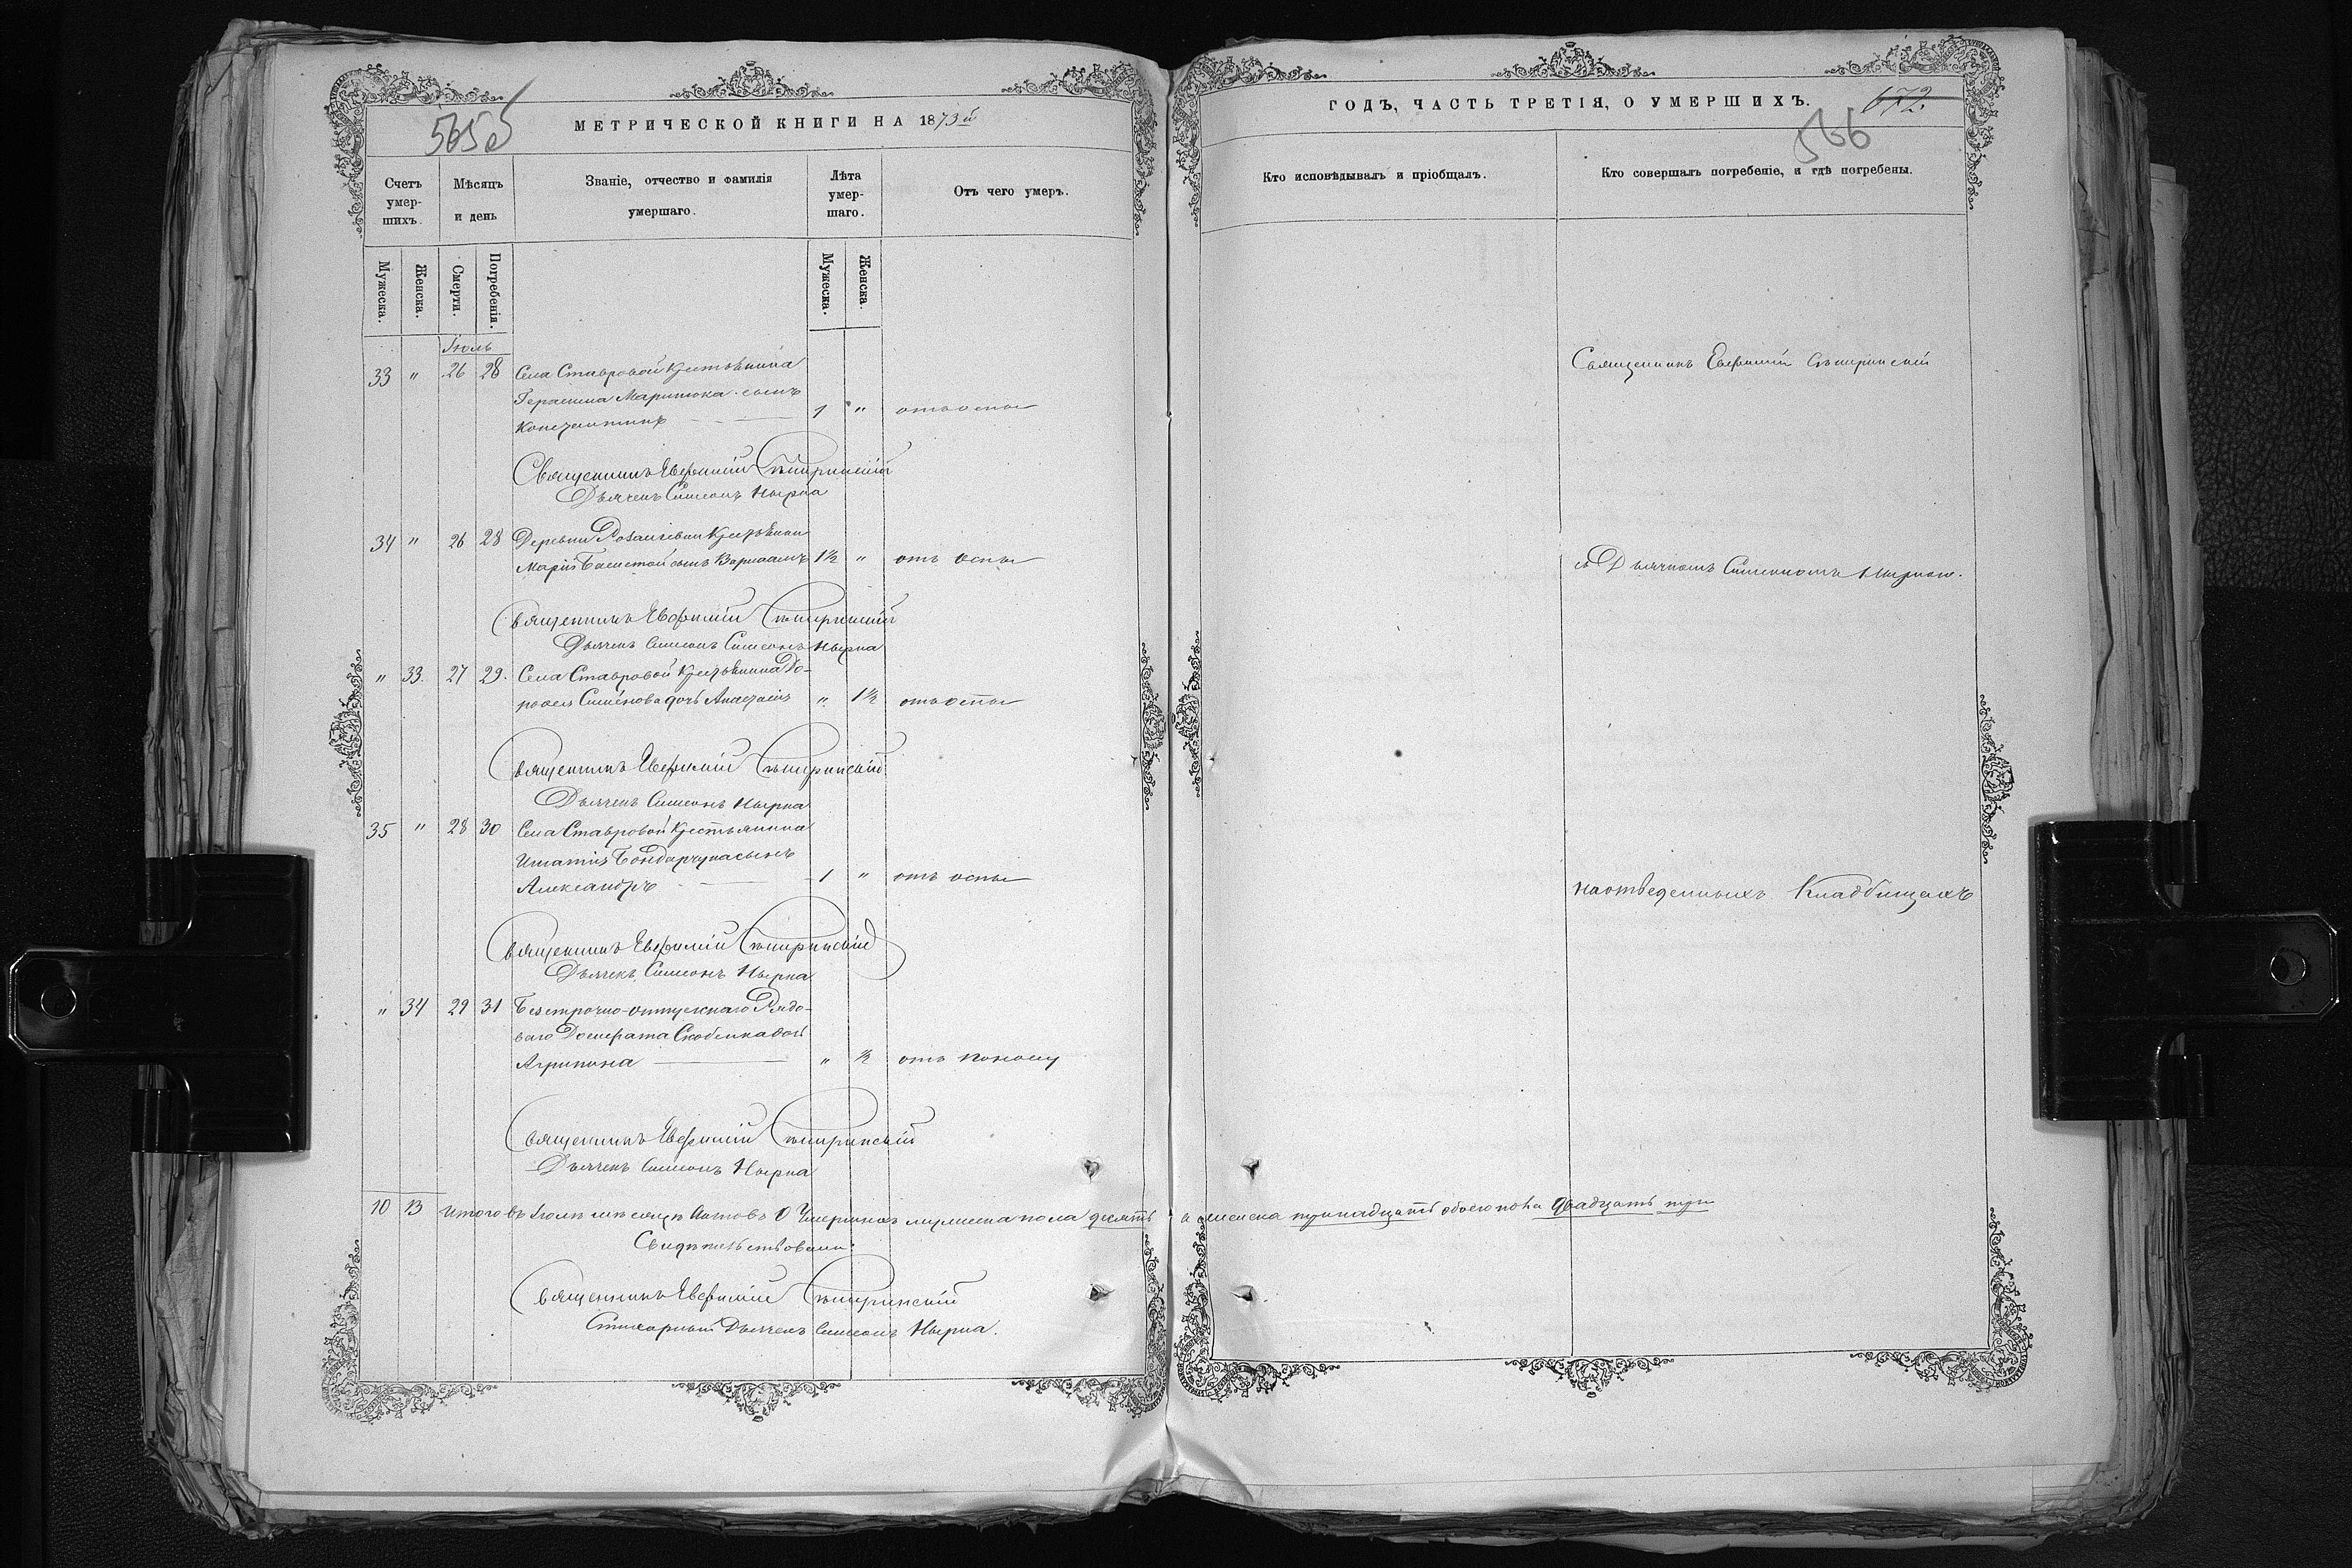 565б
МЕТРИЧЕСКОЙ КНИГИ НА 1873й
Счетъ умер-шихъ.
Мѣсяцъ и день
Званіе, отчество и фамилія умершаго.
Лѣта умер-шаго.
Отъ чего умеръ.
Мужеска.
Женска.
Смерти.
Погребенія.
Мужеска.
Женска.
Іюль
33 " 26 28 Села Ставровой Крестьянина
Герасима Маритюка сынъ
Константинъ 1 " отъ оспы
Священникъ Евфимій
Дьячекъ Симеонъ Нырка
34 " 26 28 Деревни Крестьянки
Маріи сынъ Варлаамъ 1½ " отъ оспы
Священникъ Евфимій
Дьячекъ Симеонъ Симеонъ Нырка
" 33. 27 29. Села Ставровой Крестьянина До-
рофея Симёнова дочь Анастасія " 1½ отъ оспы
Священникъ Евфимій
Дьячекъ Симеонъ Нырка
35 " 28 30 Села Ставровой Крестьянина
Игнатія Бондарчука сынъ
Александръ 1 " отъ оспы
Священникъ Евфимій
Дьячекъ Симеонъ Нырка
" 34 29 31 Безсрочно-отпускнаго Рядо-
ваго
Агрипина " ½ отъ поносу
Священникъ Евфимій
Дьячекъ Симеонъ Нырка
10 13 Итого въ Іюлѣ мѣсяцѣ Актовъ О Умершихъ мужеска пола десять а женска тринадцать обоего пола двадцать три
Свидѣтельствовали:
Священникъ Евфимій
Стихарный Дьячекъ Симеонъ Нырка.
ГОДЪ, ЧАСТЬ ТРЕТІЯ, О УМЕРШИХЪ.
672.
566
Кто исповѣдывалъ и пріобщалъ.
Кто совершалъ погребеніе, и гдѣ погребены.
Священникъ Евфимій
съ Дьячкомъ Симеономъ Ныркою.
на отведенныхъ Кладбищахъ